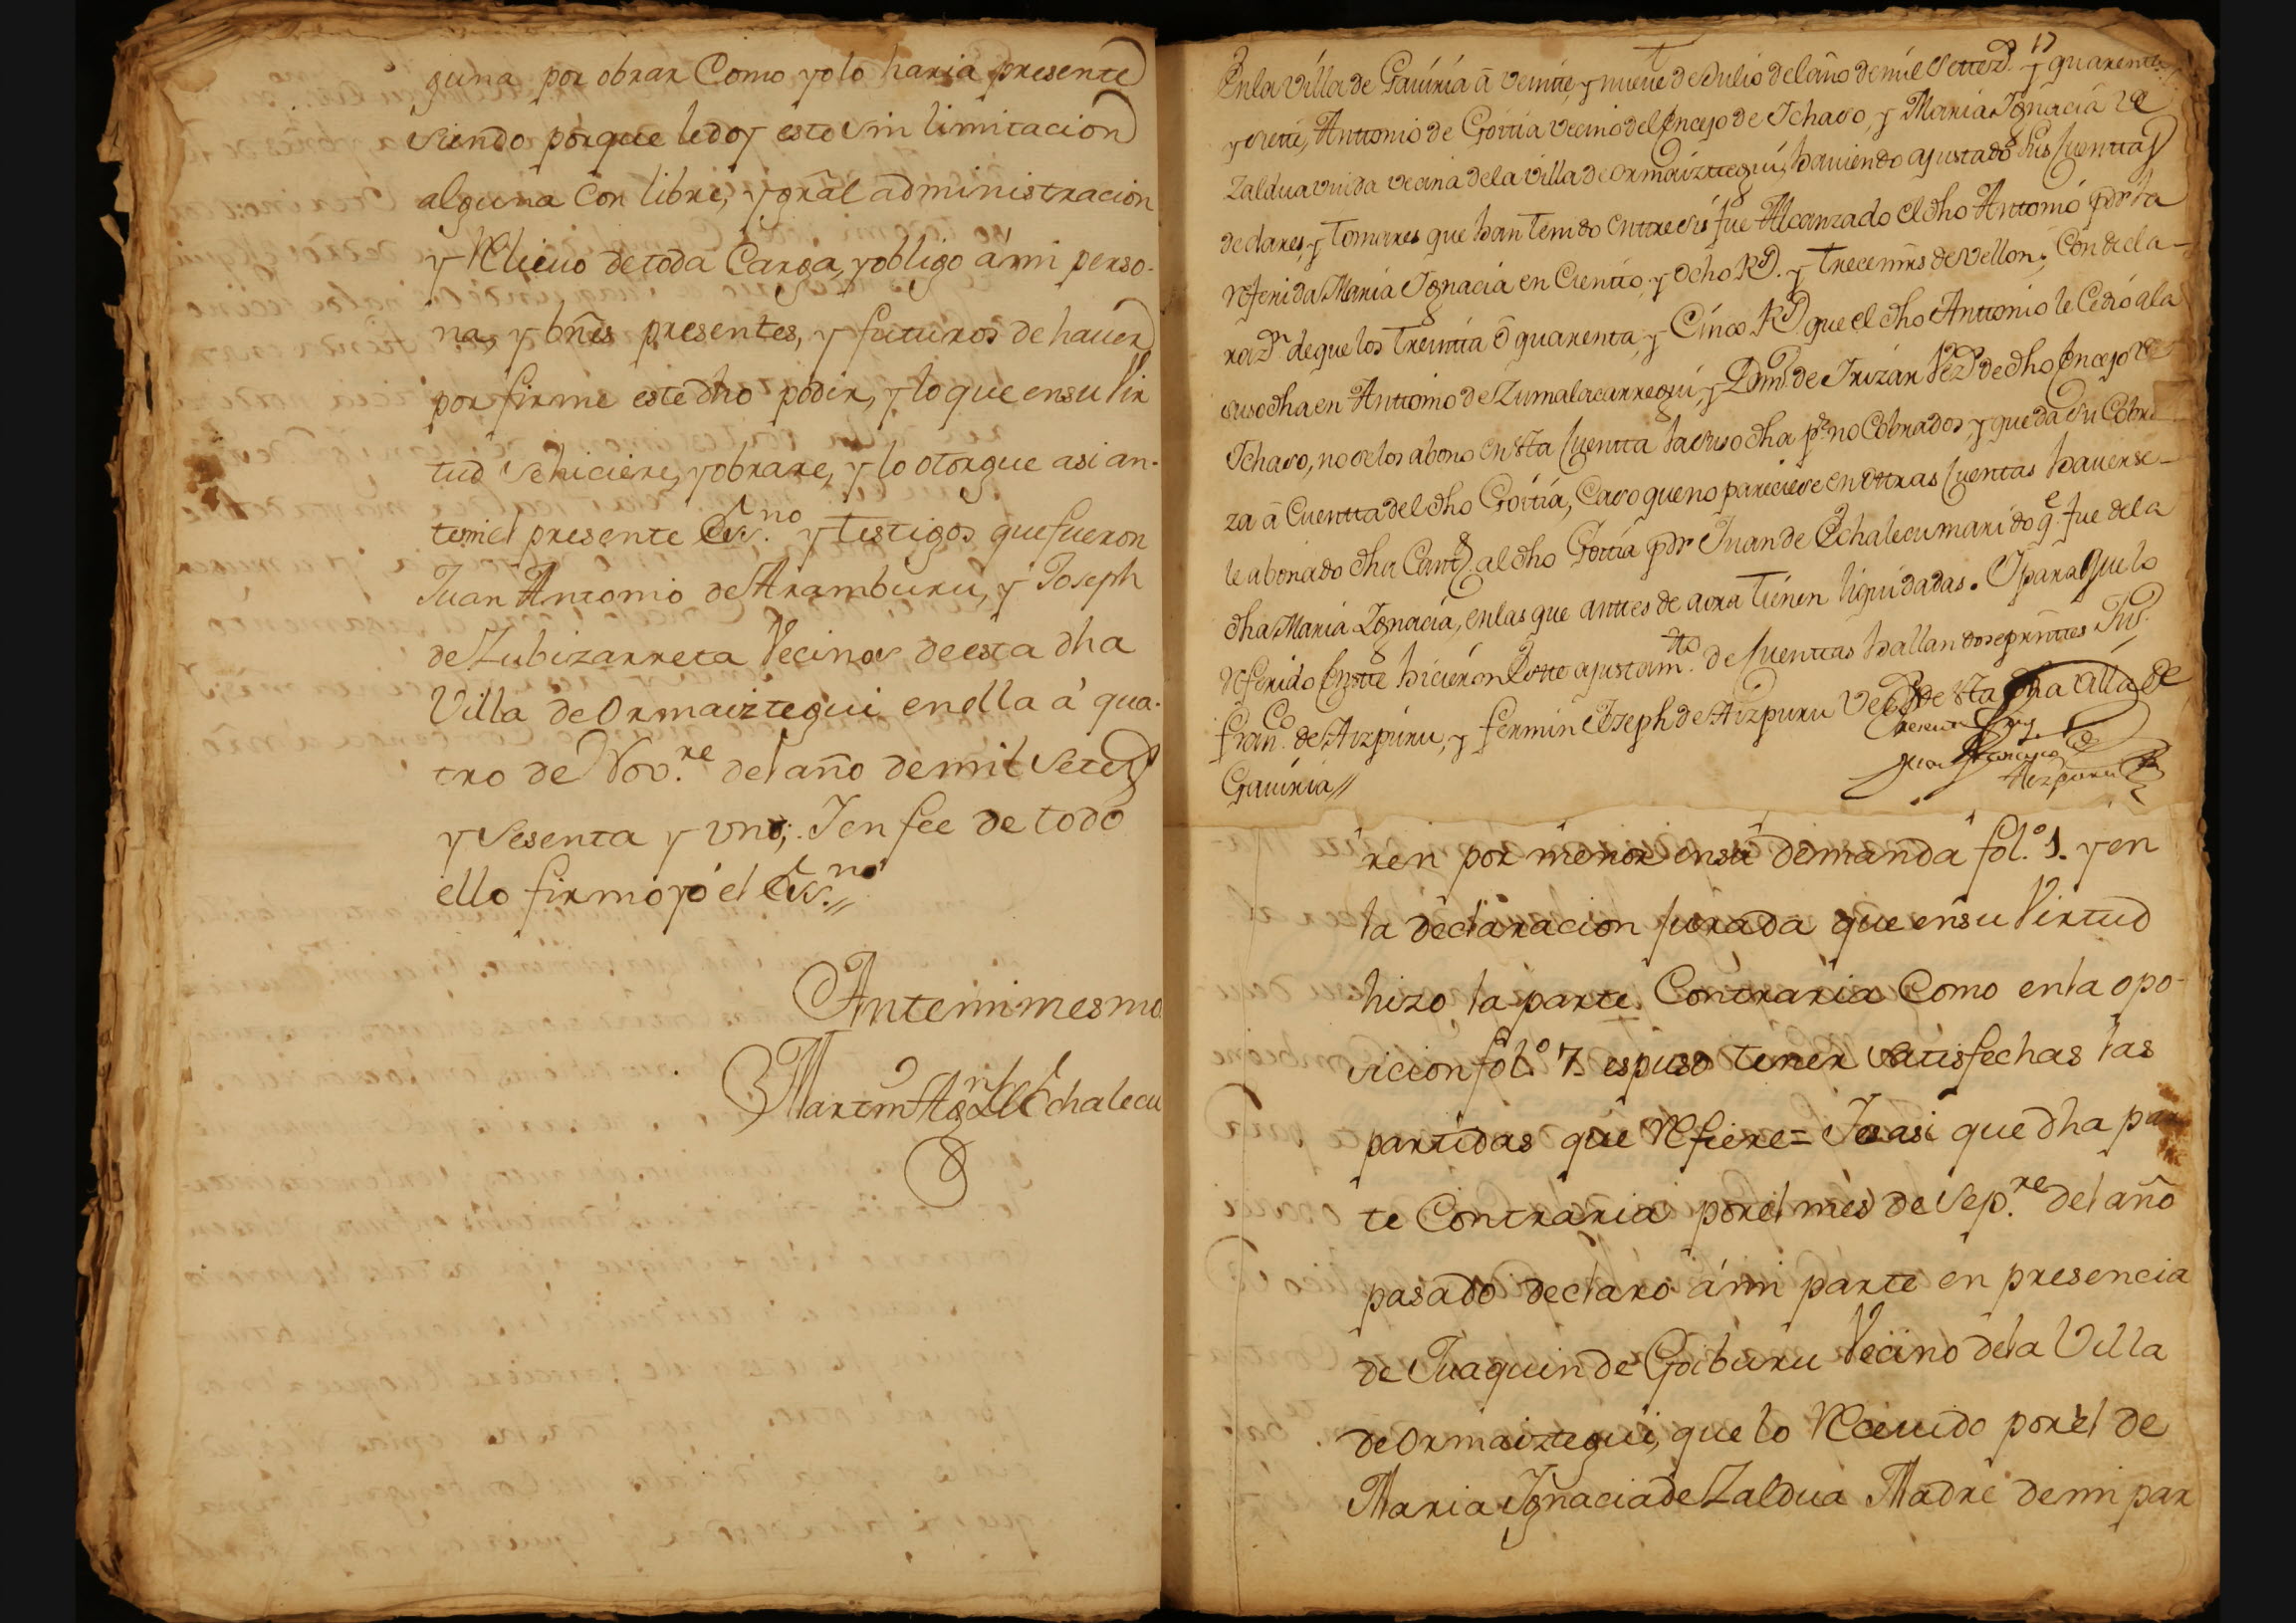 guna por obrar Como yo lo haria presente
siendo porque le doy esto sin limitacion
alguna con libre, y grãl administracion
y Relievo de toda Carga, y obligo á mi perso-
na, y bñes presentes, y futuros de haver
por firme este dho poder, y lo que en su Vir
tud se hiciere, y obrare, y lo otorgue asi an-
temi el presente Ess.no y Testigos que fueron
Juan Antonio de Aramburu, y Joseph
de Zubizarreta Vecinos de esta dha
Villa de Ormaiztegui en ella á qua-
tro de Nov.re del año de mil setes
y Sesenta y uno; Y en fee de todo
ello firmo yó el Ess.no //
Antemi mesmo
Martin Ag.n de Echalecu
17
En la Villa de Gaviria â veinte, y nueve de Julio del año de mil Settez.s y quarenta
y siette, Anttonio de Goittia vecino del Conzejo de Ichaso, y Maria Ignacia de
Zaldua viuda vecina de la villa de Ormaizttegui, haviendo ajustado sus Cuenttas
de dares, y tomares que han tenido entre sis fue Alcanzado el dho Antonio por la
referida Maria Ignacia en Cientto, y ocho R.s y trece mrs de vellon; Con decla-
raz.on de que los treintta õ quarenta, y Cinco R.s que el dho Anttonio le Cedió a la
suso dha en Anttonio de Zumalacarregui, y Dom.o de Irizar Vez.s de dho Conzejo de
Ichaso, no se los abono en esta Cuentta la suso dha p.r no Cobrados, y queda su Cobra
za â Cuentta del dho Goittia, Caso que no pareciese en ottras Cuentas haverse-
le abonado dha Cant.d al dho Goitia por Juan de Echalecu marido q.e fue de la
dha Maria Ignacia, en las que anttes de aora tienen liquidadas. Y para que lo
referido Conste hicieron Este ajustam.tto de Cuenttas hallandose presnttes Tus.
Fran.co de Aizpuru, y Fermin Joseph de Aizpuru Vez.s de esta dha villa de
Gaviria //
Juan Francisco de
Aizpuru
ren por menor en su demanda fol.o 1. y en
la declaracion jurada que en su Virtud
hizo la parte Contraria Como en la opo-
sicion fol.o 7. espuso tener satisfechas las
partidas que Refiere = Y es asi que dha par
te Contraria por el mes de Sep.re del año
pasado declaro á mi parte en presencia
de Juaquin de Goiburu Vecino de la Villa
de Ormaiztegui, que lo Recivido por el de
Maria Ignacia de Zaldua Madre de mi par